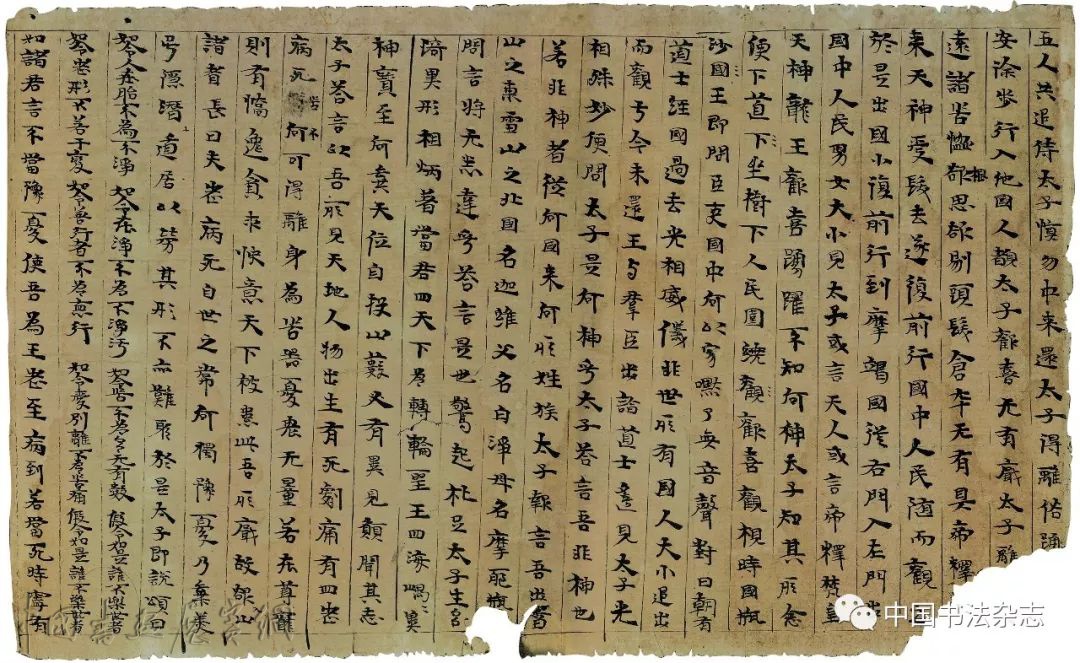 五人共追侍太子慎勿中来還太子得離俗踊
安涂步行入他國人覩太子歡喜无有厭太子離
遠諸苦惱根却思欲剔頭髮倉卒无有具帝釋
来天神受髮去遂復前行國中人民随而觀
於是出國小復前行到摩竭國從右門入左門出
國中人民男女大小見太子或言天人或言帝釋梵王
天神龍王歡喜踴躍不知何神太子知其所念
便下道下坐樹下人民圍繞觀歡喜觀視時國瓶
沙國王即問臣吏國中何以寂嘿了无音聲對曰朝有
道士經國過去光相威儀非世所有國人大小追出
而觀于今未還王与羣臣出詣道士遥見太子光
相殊妙便問太子是何神乎太子荅言吾非神也
若非神者從何國来何所姓族太子報言吾出香
山之東雪山之北國名迦維父名白淨母名摩耶瓶
問言將无悉達乎荅言是也驚起礼足太子生多
琦異形相炳著當君四天下為轉輪聖王四海喁喁冀
神寶至何棄天位自投山藪必有異見願聞其志
太子荅言以吾所見天地人物出生有死劇痛有四老
病死苦不可得離身為苦器憂畏无量若在尊寵
則有憍逸貪求快意天下被患此吾所厭故欲山
諸耆長曰夫老病死自世之常何獨豫憂乃棄美
号隱潛遁居以勞其形不亦難乎於是太子即說頌曰
如令人在胎不為不淨 如令在淨不為不淨污 如令苦不為多无有數 假令如是誰不樂者
如令老形不善于變 如令善行者不為惡行 如令愛別離不為苦痛 假令如是誰不樂者
如諸君言不當豫憂使吾為王老至病到若當死時寧有
中国书法杂志